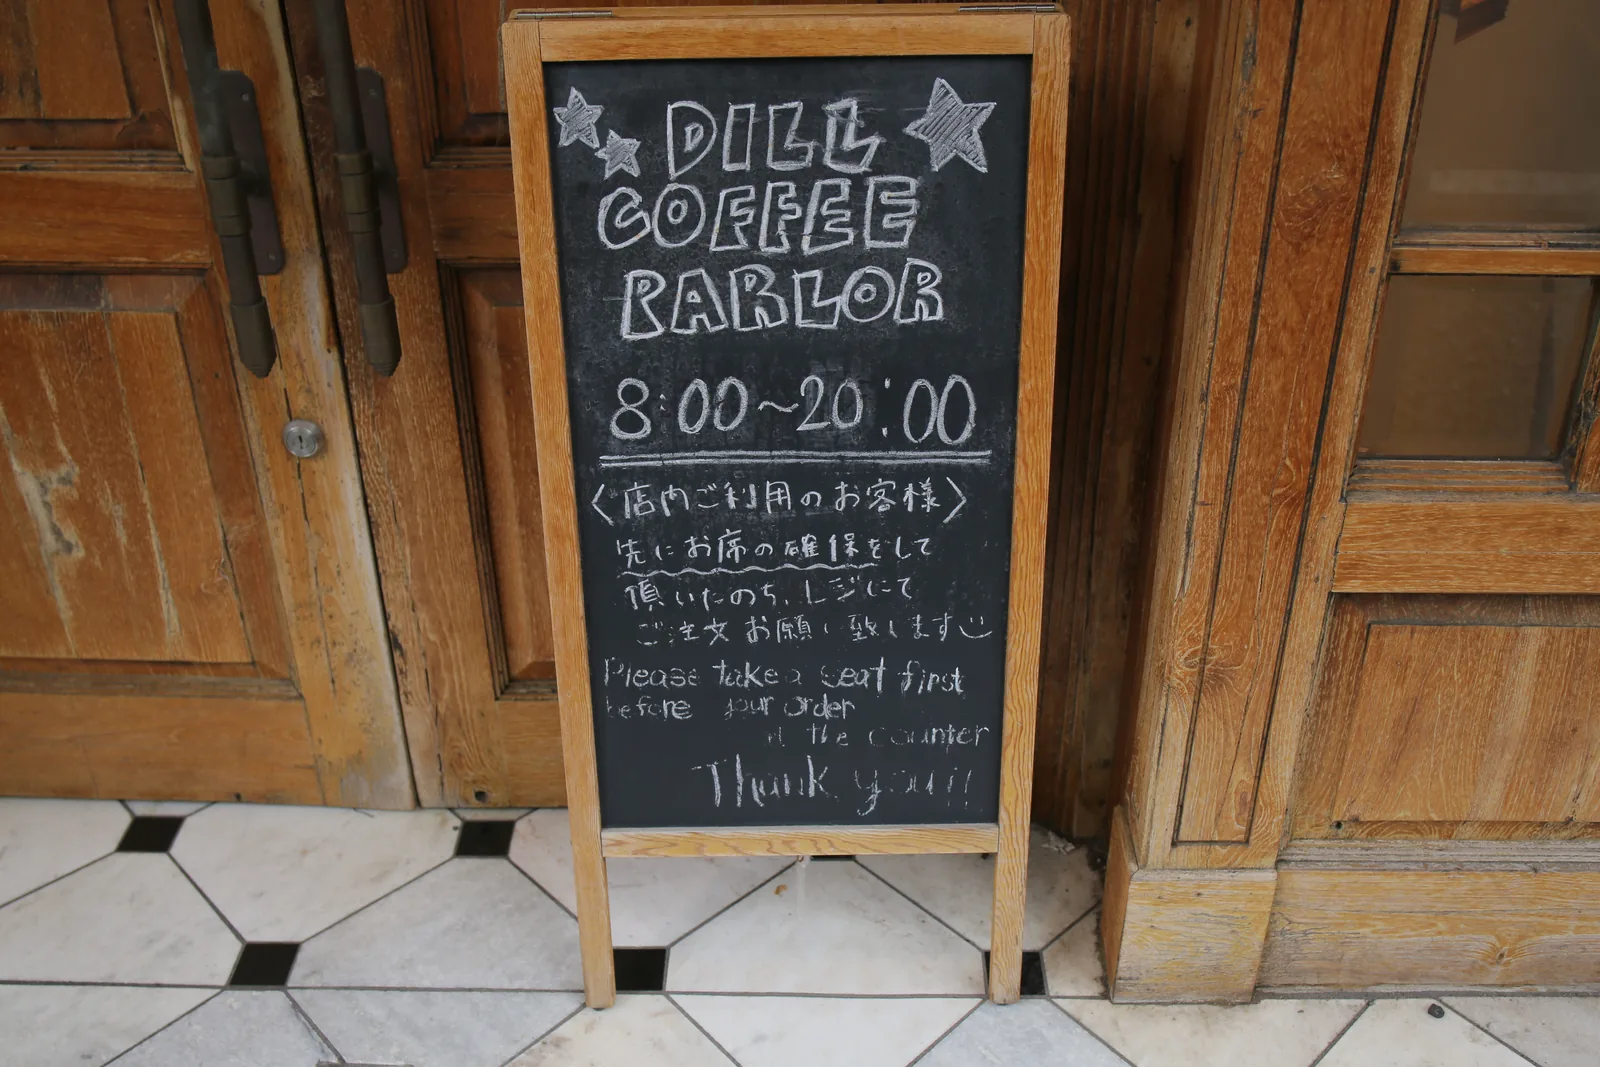 DILL
COFFEE
PARLOR
8:00~20:00
〈店内ご利用のお客様〉
先にお席の確保をして
頂いたのち、レジにて
ご注文お願い致します
Please take a seat first
before your order
at the counter
Thank you!!